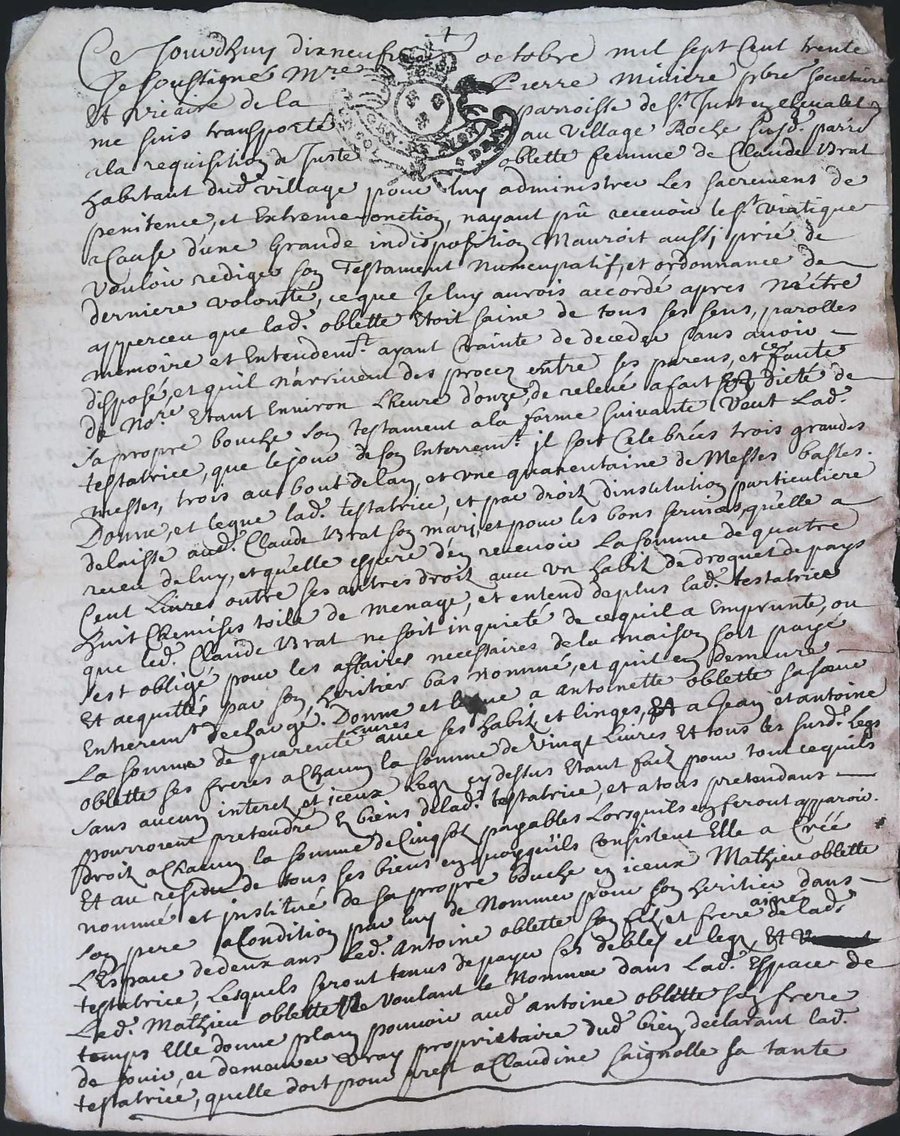 Ce Jourdhuy dixneufie octobre mil sept Cent trente
Je soussigné Mre Pierre miniere pbre societaire
Et vicaire de la parroisse de St Just en chevalet
me suis transporté au village Roche susd. parr
a la requisition de Juste oblette femme de Claude Vrat
habitant dud. village pour luy administrer les sacremens de
penitence, et Extreme onction, nayant pû recevoir le st viatique
a Cause d'une Grande indisposition Mauroit aussi prié de
vouloir rediger son Testament Nuncupatif, et ordonnance de
derniere volonté, ce que Je luy aurois accordé apres m'être
apperceu que lad. oblette Etoit saine de tous ses sens, parolles
memoire et Entendemt. ayant Crainte de deceder sans avoir
disposé, et quil n'arrivent des procez entre ses parens, et ce faute
de Nore. Etant Environ L'heure d'onze, de relevé a fait et dicté de
sa propre bouche son testament a la forme suivante Veut Lad.
testatrice, que le jour de son Enterremt. il soit Celebrées trois grandes
messes, trois au bout de lan, et une quarentaine de Messes basses.
Donne, et legue lad. testatrice, et par droit d'institution particuliere
delaisse aud. Claude Vrat son mary, et pour les bons services, qu'elle a
receu de luy, et qu'elle espere d'en recevoir La somme de quatre
Cent Livres outre ses autres droit avec un habit de droguet de pays
huit Chemises toile de menage, et entend de plus lad. testatrice
que led. Claude Vrat ne soit inquieté de ce quil a Emprunté, ou
s'est obligé pour les affaires necessaires de la maison soit payé
Et acquitté par son heritier bas nommé, et quil en Demeure
Entieremt. dechargé. Donne et legue a antoinette oblette sa sœur
La somme de quarente Livres avec ses habit et linges, et a Jean et antoine
oblette ses freres a Chacun la somme de Vingt Livres Et tous les surd. Legs
sans aucun interet, et iceux legs cy dessus Etant fait pour tout ce quils
pourroient pretendre En biens de lad. testatrice, et a tous pretendans
droit a Chacun la somme de Cinq sol payables Lorsquils en feront apparoir.
Et au residu de tous ses biens en quoy quils Consistent Elle a Créé
nommé et institué de sa propre bouche en iceux Mathieu oblette
son pere a Condition par luy de Nommer pour son heritier dans
L'espace de deux ans Led. Antoine oblette son fils et frere ainé de lad.
testatrice, Lesquels seront tenus de payer ses debtes et legs, et
Led. Mathieu oblette Ne voulant le Nommer dans Lad. Espace de
temps Elle donne plain pouvoir aud. antoine oblette son frere
de jouir, et demeurer vray proprietaire dud. bien declarant lad.
testatrice, quelle doit pour prest a Claudine saignolle sa tante